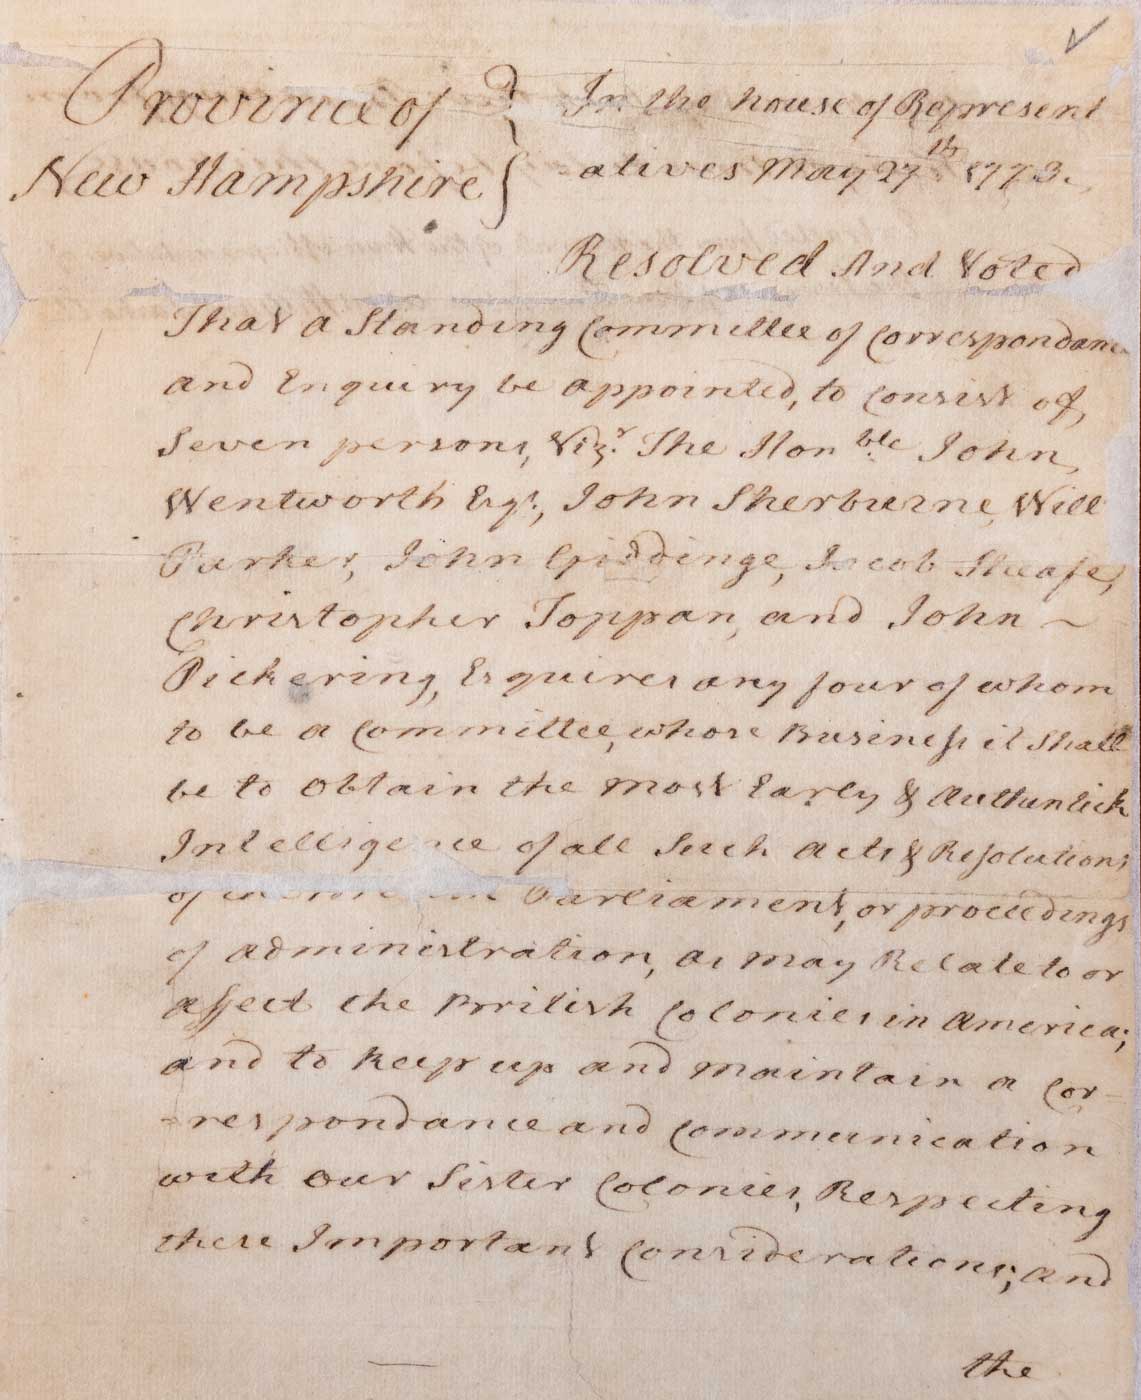 Province of } In the house of Represent
New Hampshire } atives May 27th 1773.
Resolved And Voted
That a Standing Committee of Correspondance
and Enquiry be appointed, to Consist of,
Seven persons, Vizr. The Honble John
Wentworth Esqr., John Sherburne, Will
Parker, John Giddinge, Jacob Sheafe,
Christopher Toppan, and John ~
Pickering, Esquires any four of whom
to be a Committee, whose Business it Shall
be to Obtain the Most Early & Authentick
Intelligence of all Such Acts & Resolutions
of Parliament, or proceedings
of administration, as may Relate to or
affect the British Colonies in America;
and to Keep up and Maintain a Cor-
-respondance and Communication
with Our Sister Colonies, Respecting
these Important Considerations; and
the